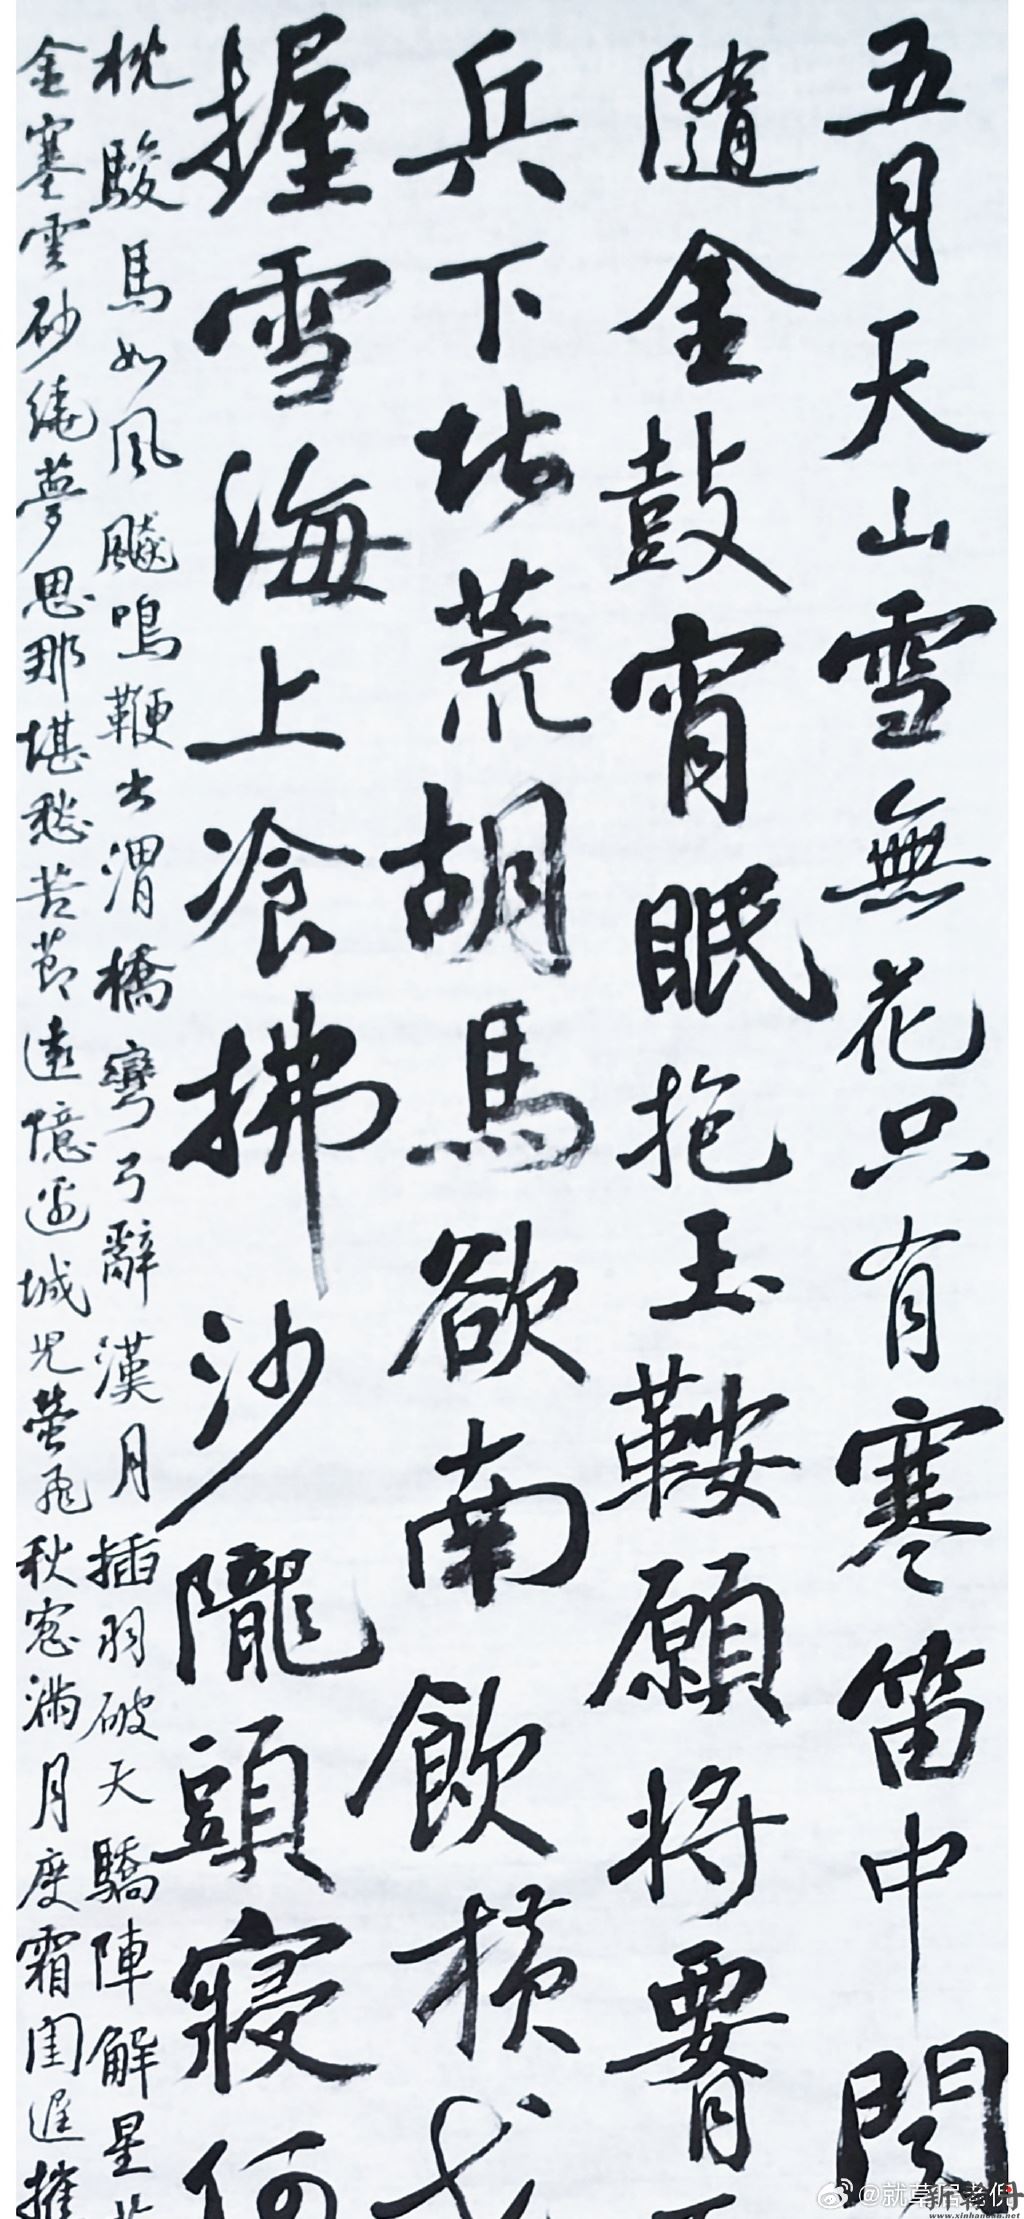 五月天山雪無花只有寒笛中聞
隨金鼓宵眠抱玉鞍願將腰下
兵下北荒胡馬欲南飲橫戈
握雪海上飡拂沙隴頭寢何
枕駿馬如風飈鳴鞭出渭橋彎弓辭漢月插羽破天驕陣解星芒
金塞雲砂繞夢思那堪愁苦節遠憶邊城兒螢飛秋窓滿月度霜閨遲摧
@就草居老倪
www.xinhancan.net